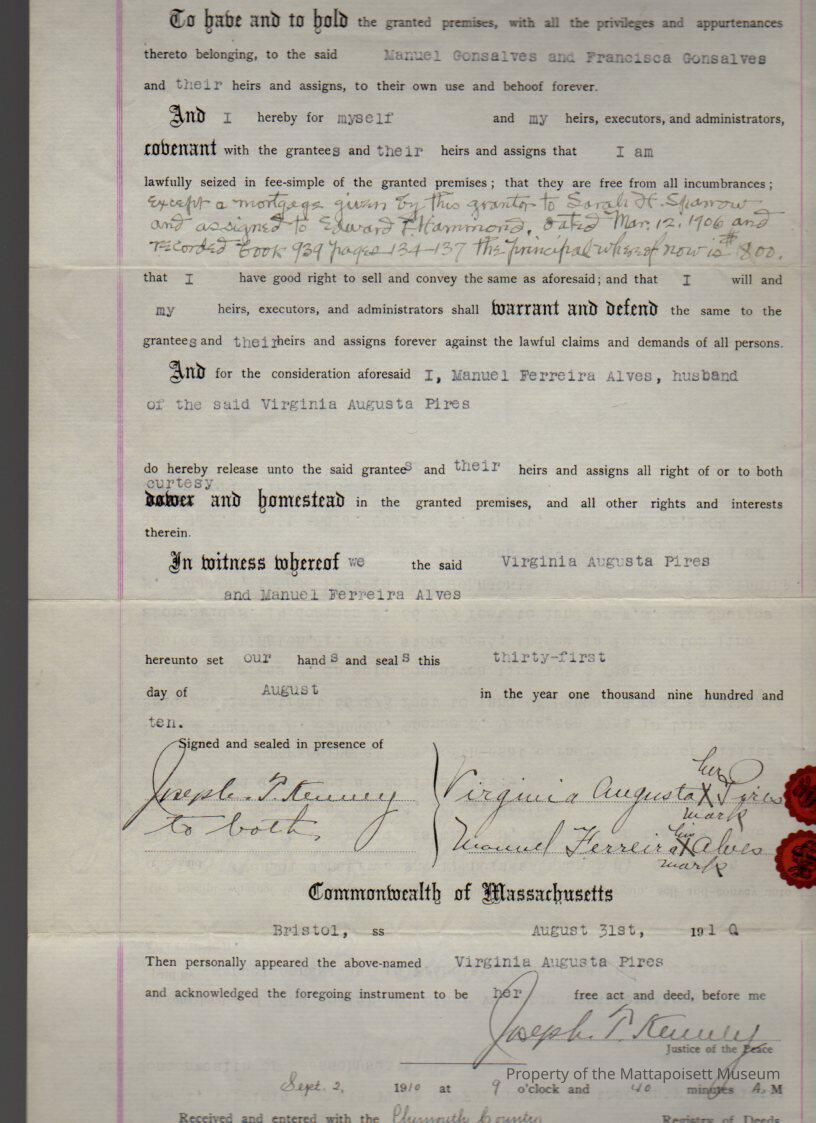 To have and to hold the granted premises, with all the privileges and appurtenances
thereto belonging, to the said Manuel Gonsalves and Francisca Gonsalves
and their heirs and assigns, to their own use and behoof forever.
And I hereby for myself and my heirs, executors, and administrators,
covenant with the grantees and their heirs and assigns that I am
lawfully seized in fee-simple of the granted premises; that they are free from all incumbrances;
except a mortgage given by this grantor to Sarah H. Sparrow
and assigned to Edward F. Hammond, dated Mar. 12, 1906 and
recorded Book 939 pages 134-137 the principal whereof now is $800.
that I have good right to sell and convey the same as aforesaid; and that I will and
my heirs, executors, and administrators shall warrant and defend the same to the
grantees and their heirs and assigns forever against the lawful claims and demands of all persons.
And for the consideration aforesaid I, Manuel Ferreira Alves, husband
of the said Virginia Augusta Pires
do hereby release unto the said grantees and their heirs and assigns all right of or to both
curtesy
dower and homestead in the granted premises, and all other rights and interests
therein.
In witness whereof we the said Virginia Augusta Pires
and Manuel Ferreira Alves
hereunto set our hands and seals this thirty-first
day of August in the year one thousand nine hundred and
ten.
Signed and sealed in presence of
her
Joseph T. Kenney Virginia Augusta X Pires
mark
to both.
his
Manuel Ferreira X Alves
mark
Commonwealth of Massachusetts
Bristol, ss August 31st, 1910
Then personally appeared the above-named Virginia Augusta Pires
and acknowledged the foregoing instrument to be her free act and deed, before me
Joseph T. Kenney
Justice of the Peace
Property of the Mattapoisett Museum
Sept. 2, 1910 at 9 o'clock and 40 minutes A. M
Received and entered with the Plymouth County Registry of Deeds